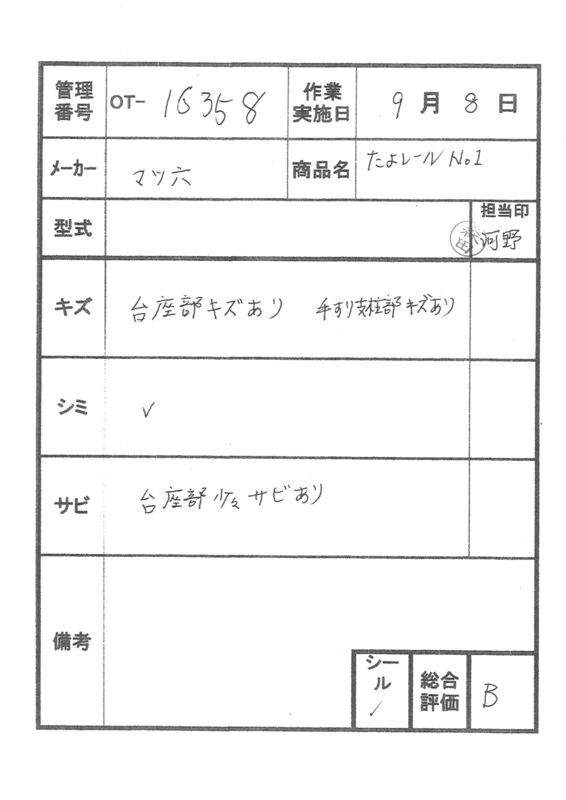 管理番号 OT- 16358 作業実施日 9月8日
メーカー マツ六 商品名 たよレール No1
型式 担当印
河野
キズ 台座部キズあり 手すり支柱部キズあり
シミ ✓
サビ 台座部少々サビあり
備考
シール ✓ 総合評価 B